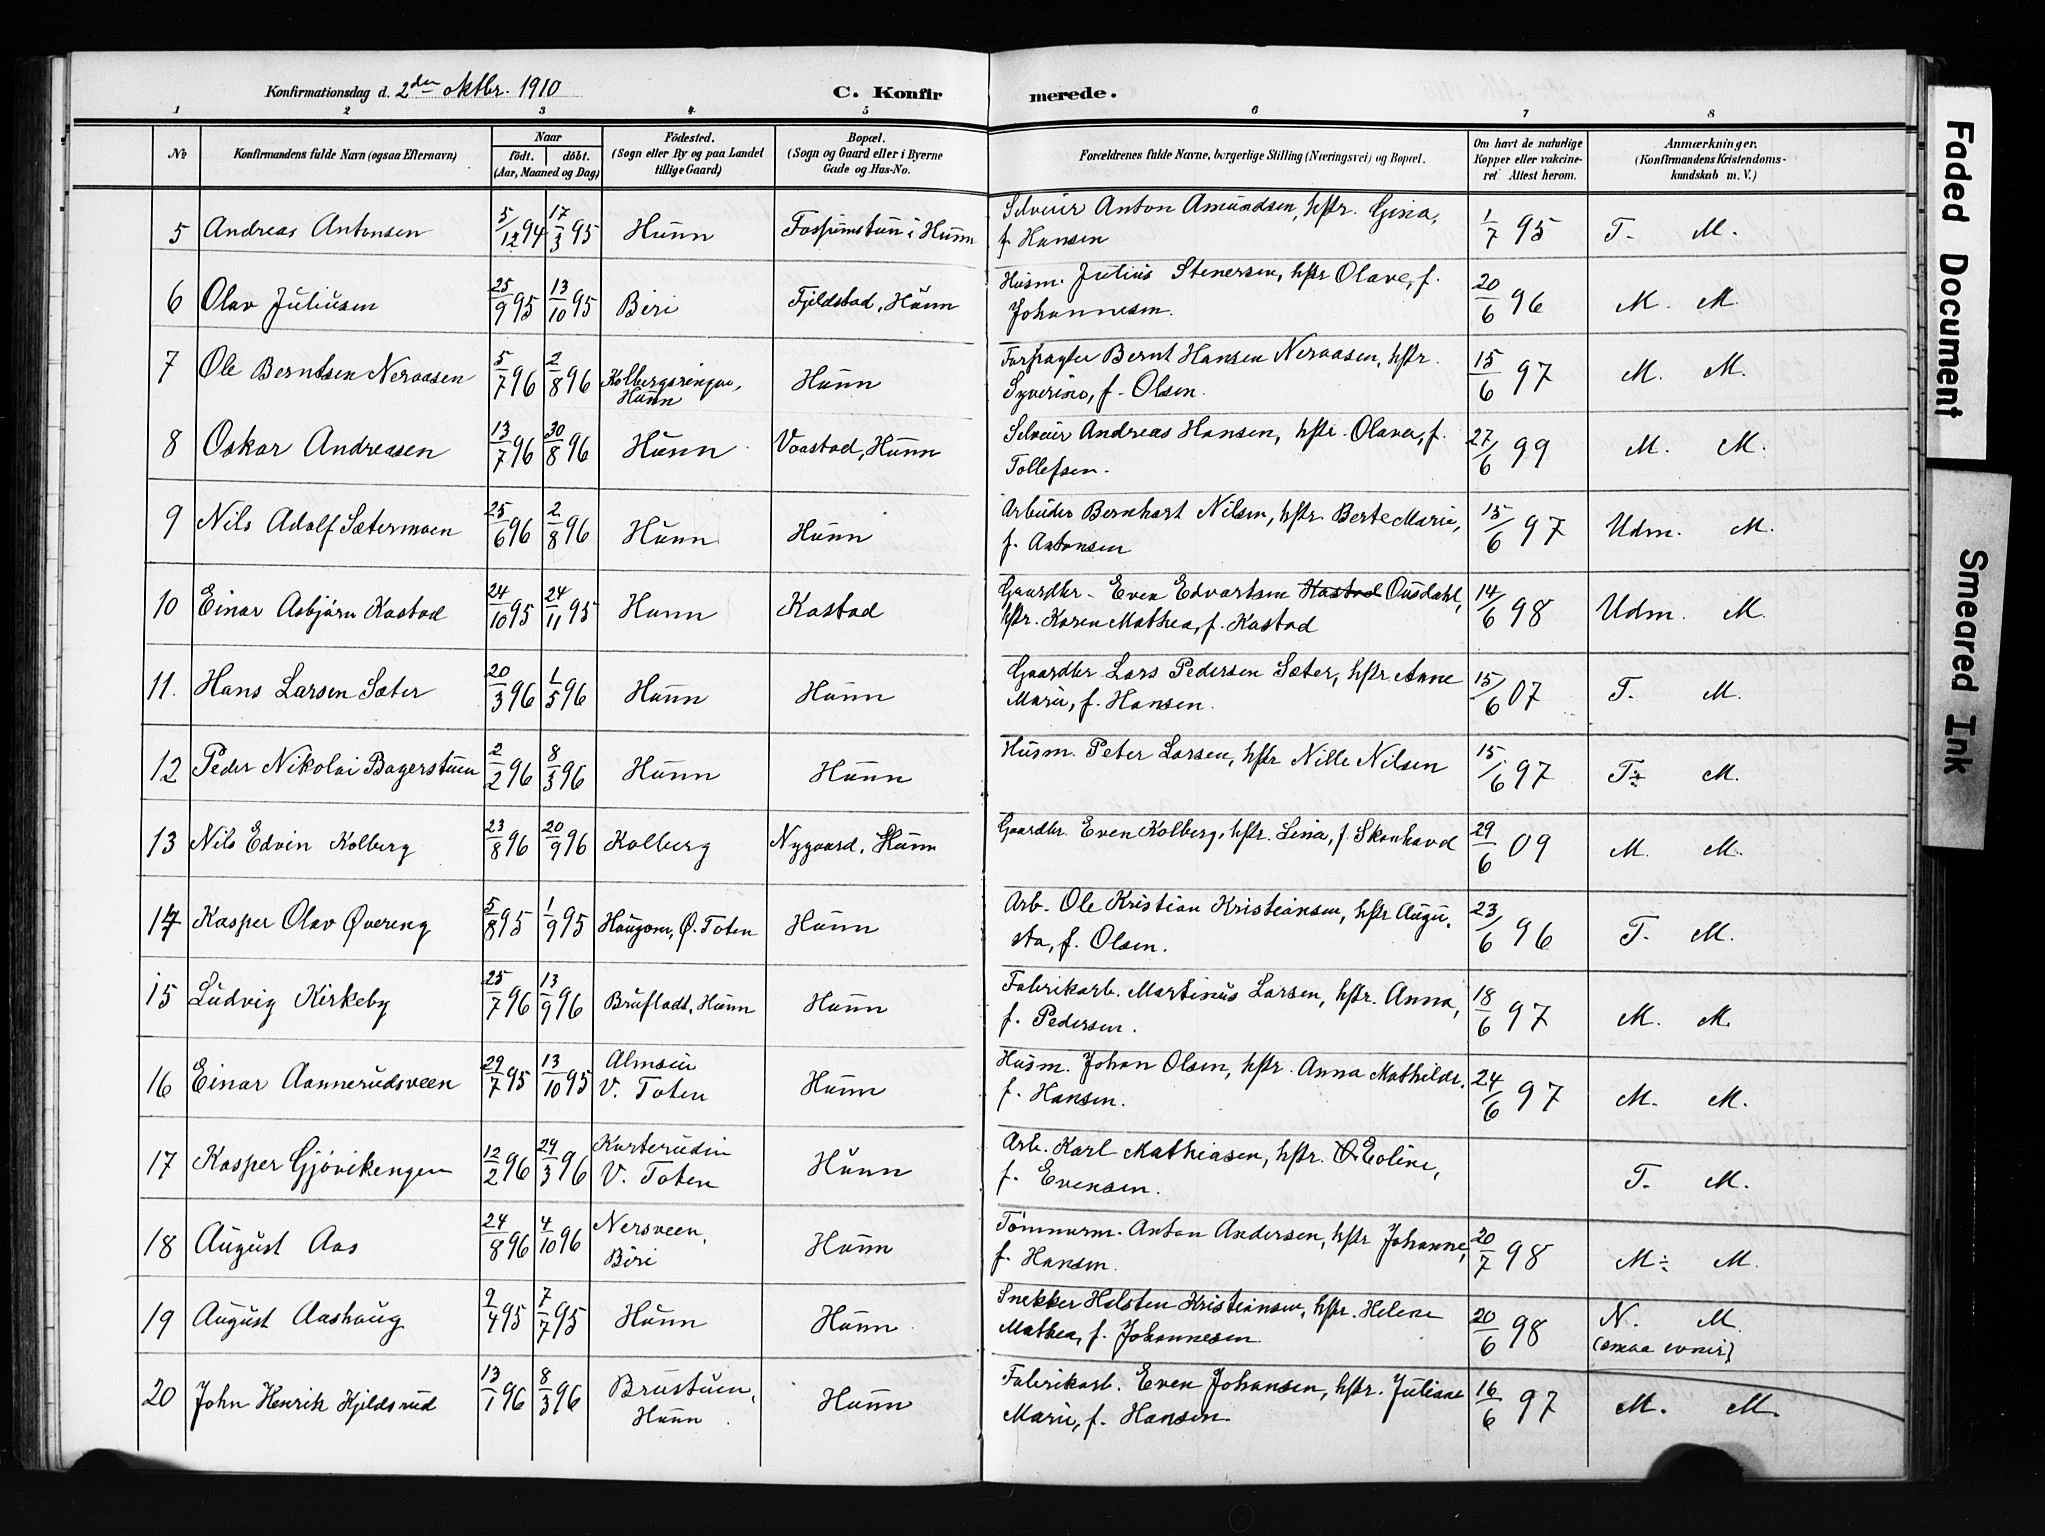 Konfirmationsdag d. 2den oktbr. 1910
C. Konfirmerede.
1 2 3 4 5 6 7 8
No
Konfirmandens fulde Navn (ogsaa Efternavn)
Naar
födt. döbt.
(Aar, Maaned og Dag)
Födested.
(Sogn eller By og paa Landet
tillige Gaard)
Bopæl.
(Sogn og Gaard eller i Byerne
Gade og Hus-No.
Forældrenes fulde Navne, borgerlige Stilling (Næringsvei) og Bopæl.
Om havt de naturlige
Kopper eller vakcine-
ret Attest herom.
Anmærkninger.
(Konfirmandens Kristendoms-
kundskab m. V.)
5 Andreas Antonsen 5/12 94 17/3 95 Hunn i Hunn Selveier Anton Amundsen, hstr. Gina, 1/7 95 T. M.
f. Hansen
6 Olav Juliusen 25/9 95 13/10 95 Biri Fjeldstad, Hunn Husm. Julius Stenersen, hstr Olave, f. 20/6 96 M. M.
Johannesen.
7 Ole Berntsen Neraasen 5/7 96 2/8 96 Kolbergsengen, Hunn Forpagter Bernt Hansen Neraasen, hstr. 15/6 97 M. M.
Hunn Syverine, f. Olsen.
8 Oskar Andreasen 13/7 96 30/8 96 Hunn Vaastad, Hunn Selveier Andreas Hansen, hstr. Olava, f. 27/6 99 M. M.
Tollefsen.
9 Nils Adolf Sætermoen 25/6 96 2/8 96 Hunn Hunn Arbeider Bernhart Nilsen, hstr. Berte Marie, 15/6 97 Udm. M.
f. Antonsen
10 Einar Asbjörn Kastad 24/10 95 24/11 95 Hunn Kastad Gaardbr. Even Edvartsen Kastad Ousdahl, 14/6 98 Udm. M.
hstr. Karen Mathea, f. Kastad
11. Hans Larsen Sæter 20/3 96 1/5 96 Hunn Hunn Gaardbr Lars Pedersen Sæter, hstr Anne 15/6 07 T. M.
Marie, f. Hansen.
12 Peder Nikolai Bagerstuen 2/2 96 8/3 96 Hunn Hunn Husm. Peter Larsen, hstr Nille Nilsen 15/6 97 T÷ M.
13 Nils Edvin Kolberg 23/8 96 20/9 96 Kolberg Nygaard, Hunn Gaardbr. Even Kolberg, hstr. Lina, f. Skonhovd 29/6 09 M. M.
14 Kasper Olav Øvereng 5/8 95 1/9 95 Haugom, Ø. Toten Hunn Arb. Ole Kristian Kristiansen, hstr Augu- 23/6 96 T. M.
sta, f. Olsen.
15 Ludvig Kirkeby 25/7 96 13/9 96 Brufladt, Hunn Hunn Fabrikarb. Martinus Larsen, hstr. Anna, 18/6 97 M. M.
f. Pedersen.
16 Einar Aannerudsveen 29/7 95 13/10 95 Almseie Hunn Husm. Johan Olsen, hstr. Anna Mathilde. 24/6 97 M. M.
V. Toten f. Hansen.
17 Kasper Gjövikengen 12/2 96 29/3 96 Karterudeie Hunn Arb. Karl Mathiasen, hstr. Eoline, T. M.
V. Toten f. Evensen.
18 August Aas 24/8 96 4/10 96 Nersveen, Hunn Tömmerm. Anton Andersen, hstr Johanne, 20/7 98 M÷ M.
Biri f. Hansen.
19 August Aashaug 2/4 95 7/7 95 Hunn Hunn Snekker Halsten Kristiansen, hstr. Helene 20/6 98 N. M.
Mathea, f. Johannesen (smaa evner)
20 John Henrik Kjeldsrud 13/1 96 8/3 96 Brustuen, Hunn Fabrikarb. Even Johansen, hstr. Juliane 16/6 97 M. M.
Hunn Marie, f. Hansen
Faded Document
Smeared Ink